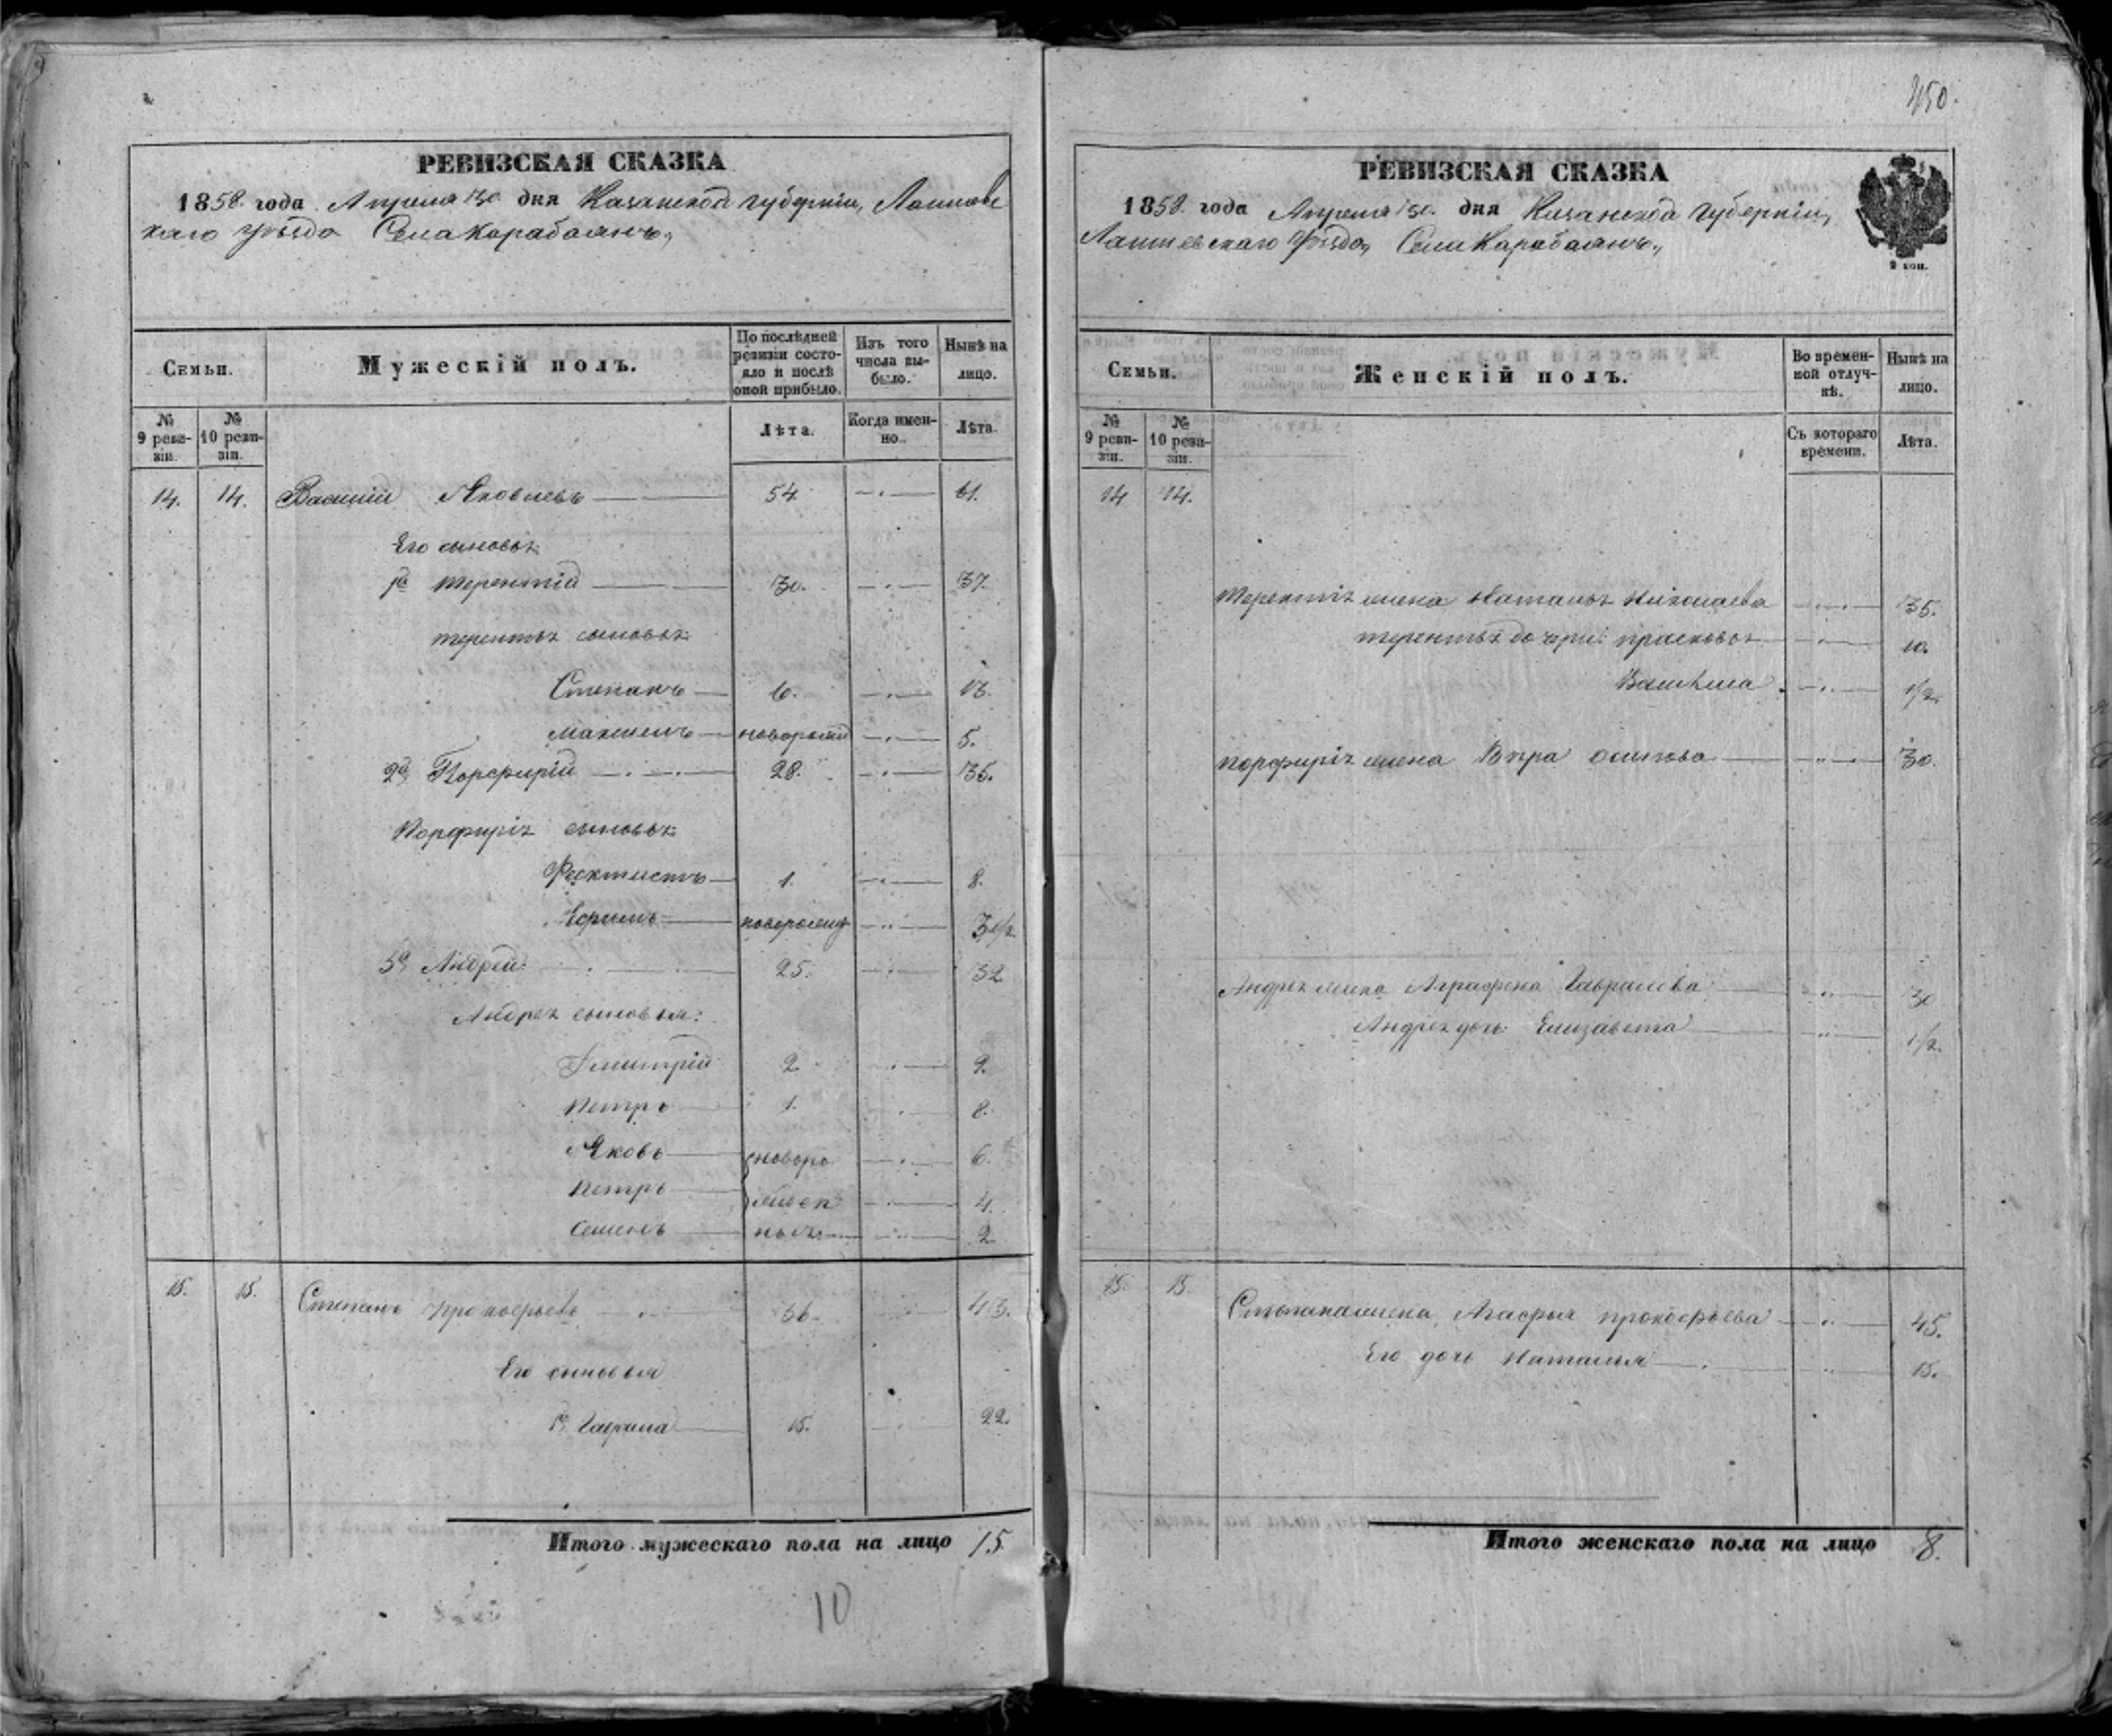 РЕВИЗСКАЯ СКАЗКА
1858 года Апреля 30 дня Казанской губернии, Лаишевс
каго уѣзда Села Карабаянъ
Семьи.
Мужескій полъ.
По послѣдней ревизіи состояло и послѣ оной прибыло.
Изъ того числа выбыло.
Нынѣ на лицо.
№ 9 ревизіи.
№ 10 ревизіи.
Лѣта.
Когда именно.
Лѣта.
14. 14. Василій Яковлевъ 54 61.
Его сыновья
1й Терентій 30. 37.
Терентья сыновья
Степанъ 6. 13.
Максимъ новорожд 5.
2й Порфирій 28. 35.
Порфирія сыновья
Феоктистъ 1. 8.
Ефимъ новорожд 3 1/2
3й Андрей 25. 32
Андрея сыновья:
Дмитрій 2. 9.
Петръ 1. 8.
Яковъ новоро 6.
Петръ жден 4.
Семенъ ныя 2
15. 15. Степанъ Прокофьевъ 36. 43.
Его сыновья
1й Гаврила 15. 22.
Итого мужескаго пола на лицо 15.
10
450.
РЕВИЗСКАЯ СКАЗКА
1858 года Апреля 30. дня Казанской губерніи,
Лаишевскаго уѣзда, Села Карабаянъ
2 коп.
Семьи.
Женскій полъ.
Во временной отлучкѣ.
Нынѣ на лицо.
№ 9 ревизіи.
№ 10 ревизіи.
Съ котораго времени.
Лѣта.
14 14.
Терентія жена Наталья Николаева 35.
Терентья дочери: Прасковья 10.
Василиса 1/2
Порфирія жена Вѣра Осипова 30.
Андрея жена Аграфена Гаврилова 30
Андрея дочь Елизавета 1/2.
15. 15. Степана жена Агафья Прокофьева 45.
Его дочь Наталья 15.
Итого женскаго пола на лицо 8.